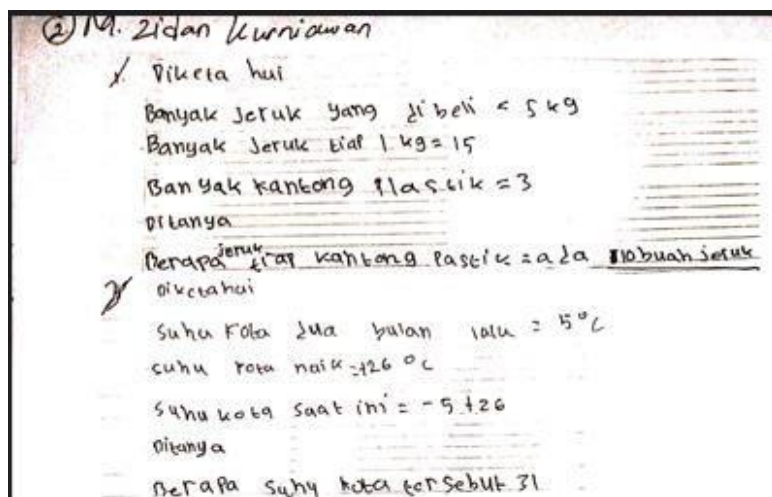 ② M. Zidan Kurniawan
1. Diketahui
Banyak Jeruk yang dibeli = 5 kg
Banyak Jeruk tiap 1 kg = 15
Banyak kantong Plastik = 3
Ditanya
Berapa jeruk tiap kantong Pastik = ada 10 buah jeruk
2. Diketahui
Suhu Kota dua bulan lalu = 5°C
suhu kota naik = +26 °C
Suhu kota saat ini = -5 + 26
Ditanya
Berapa suhu kota tersebut 31